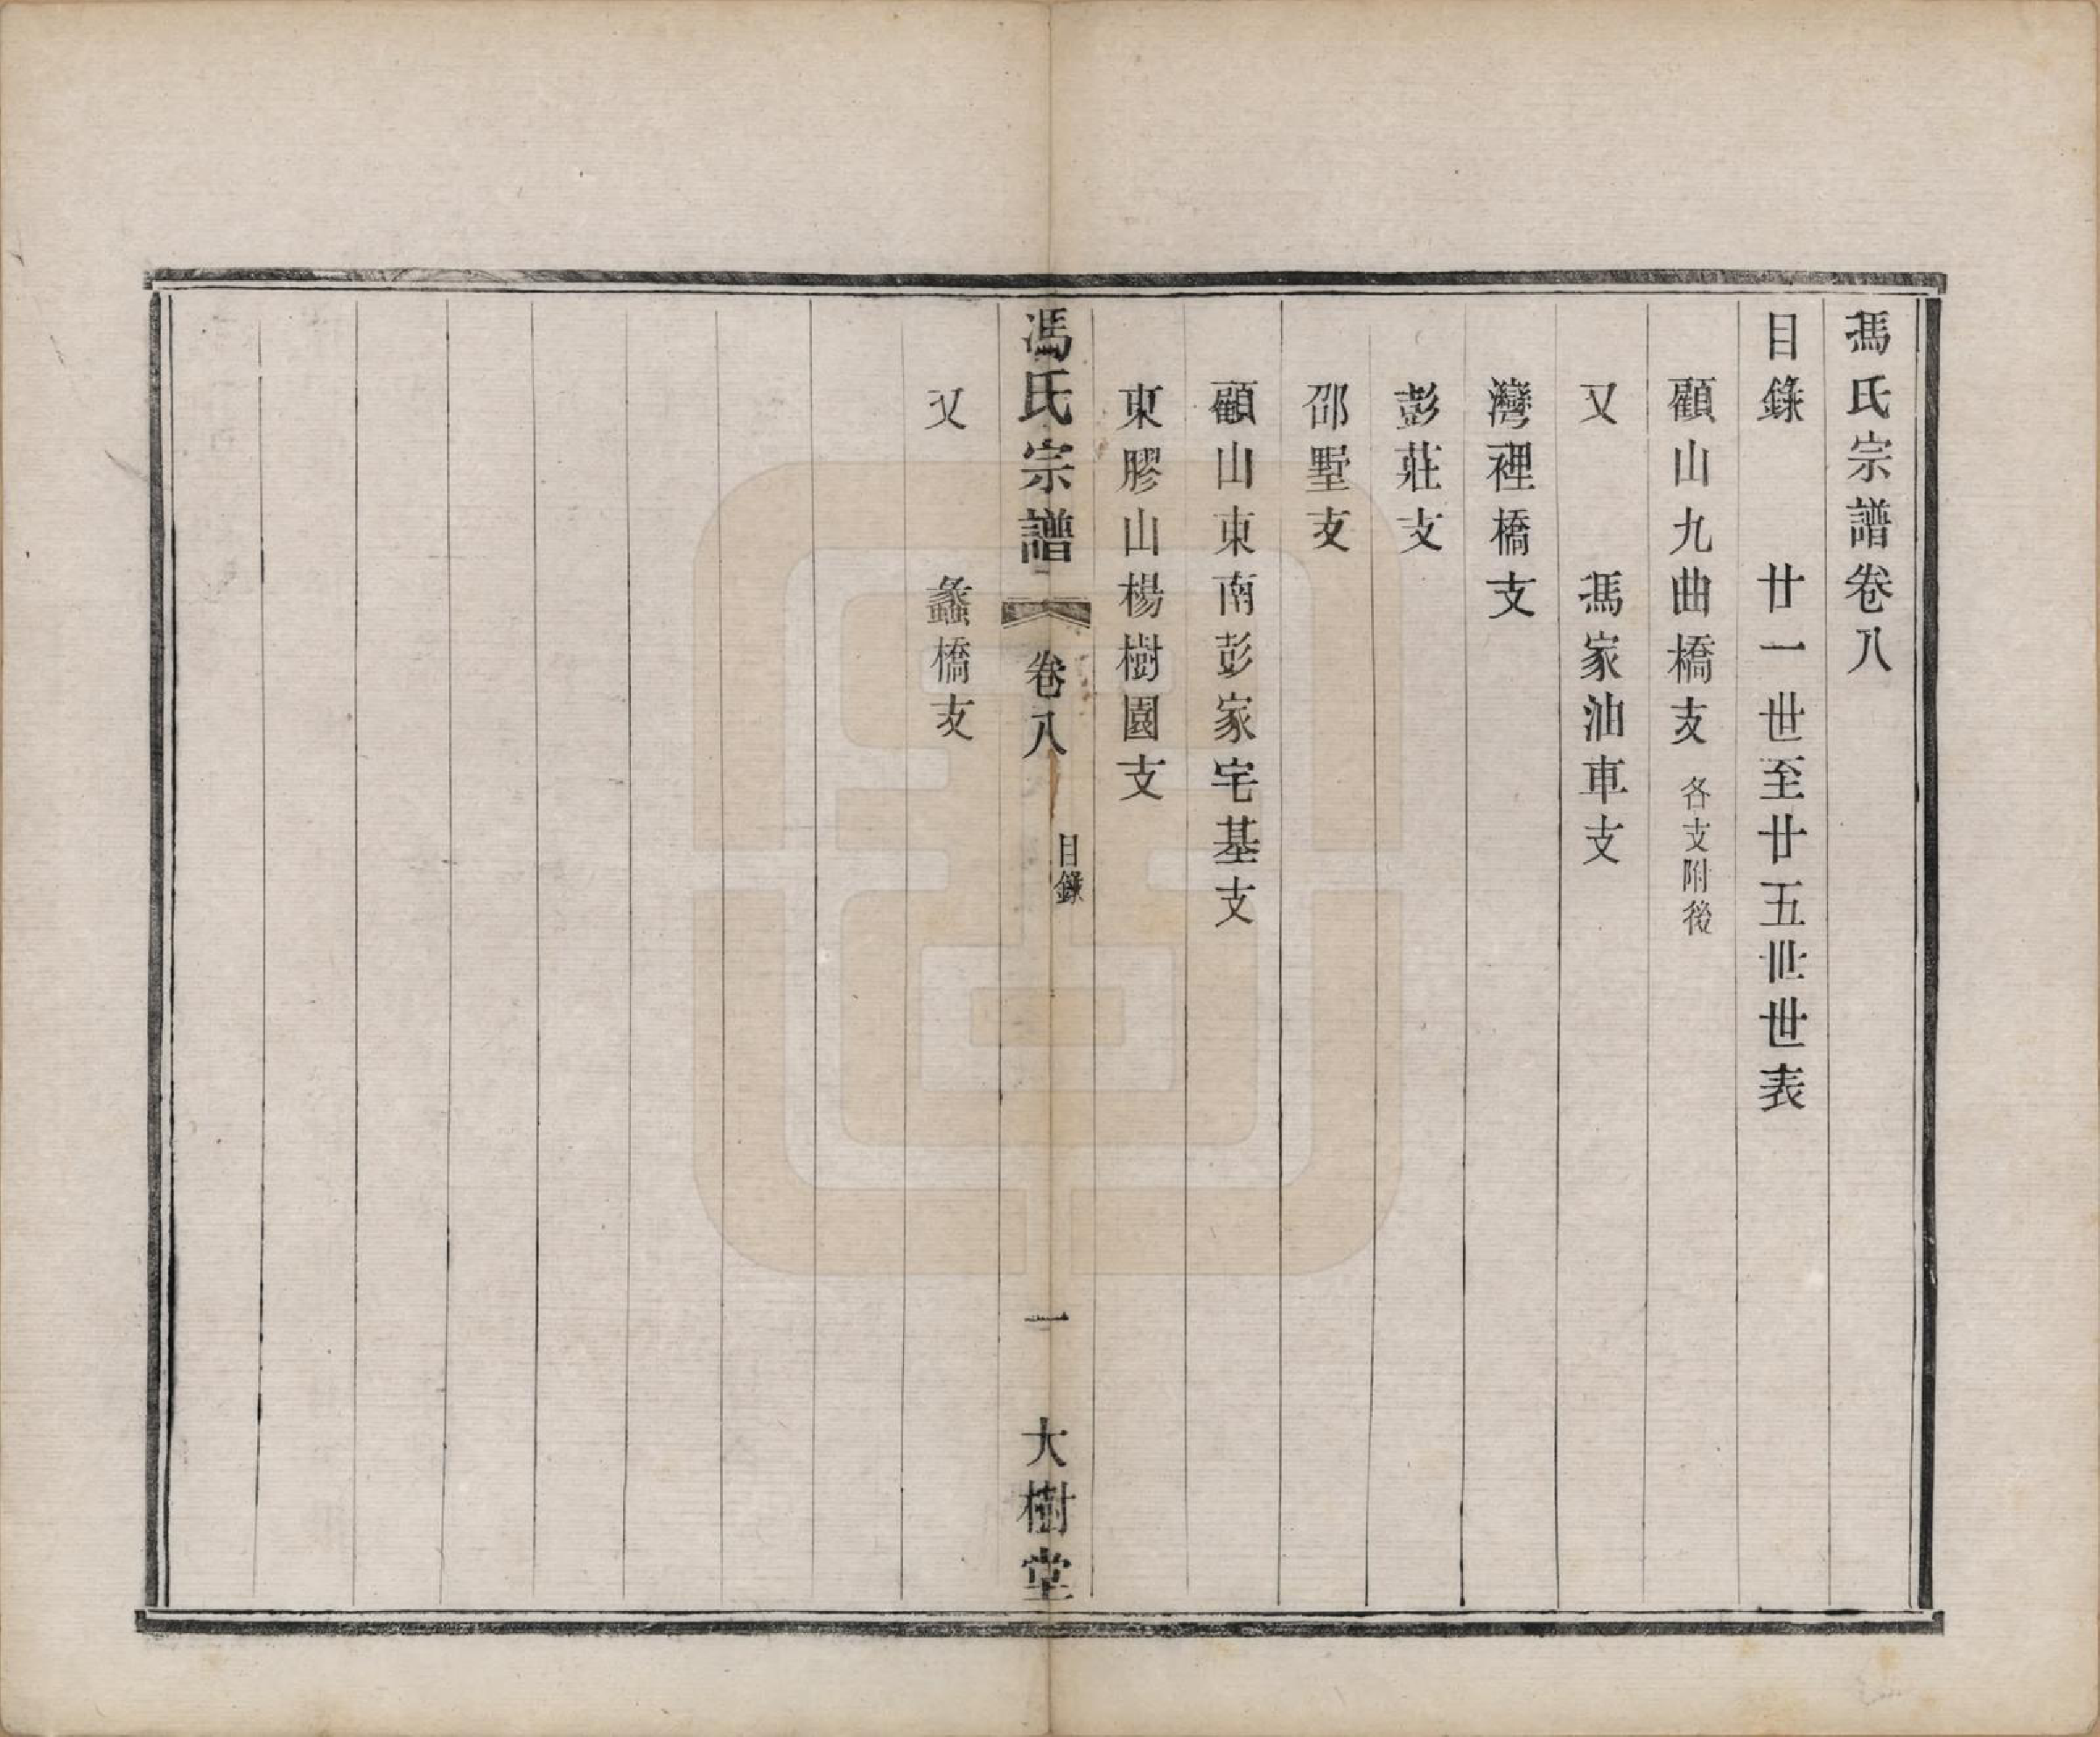 馮氏宗譜卷八
目錄　廿一世至廿五世世表
顧山九曲橋支　各支附後
又　馮家油車支
灣裡橋支
彭莊支
邵墅支
顧山東南彭家宅基支
東膠山楊樹園支
馮氏宗譜　卷八　目錄　一　大樹堂
又　蠡橋支